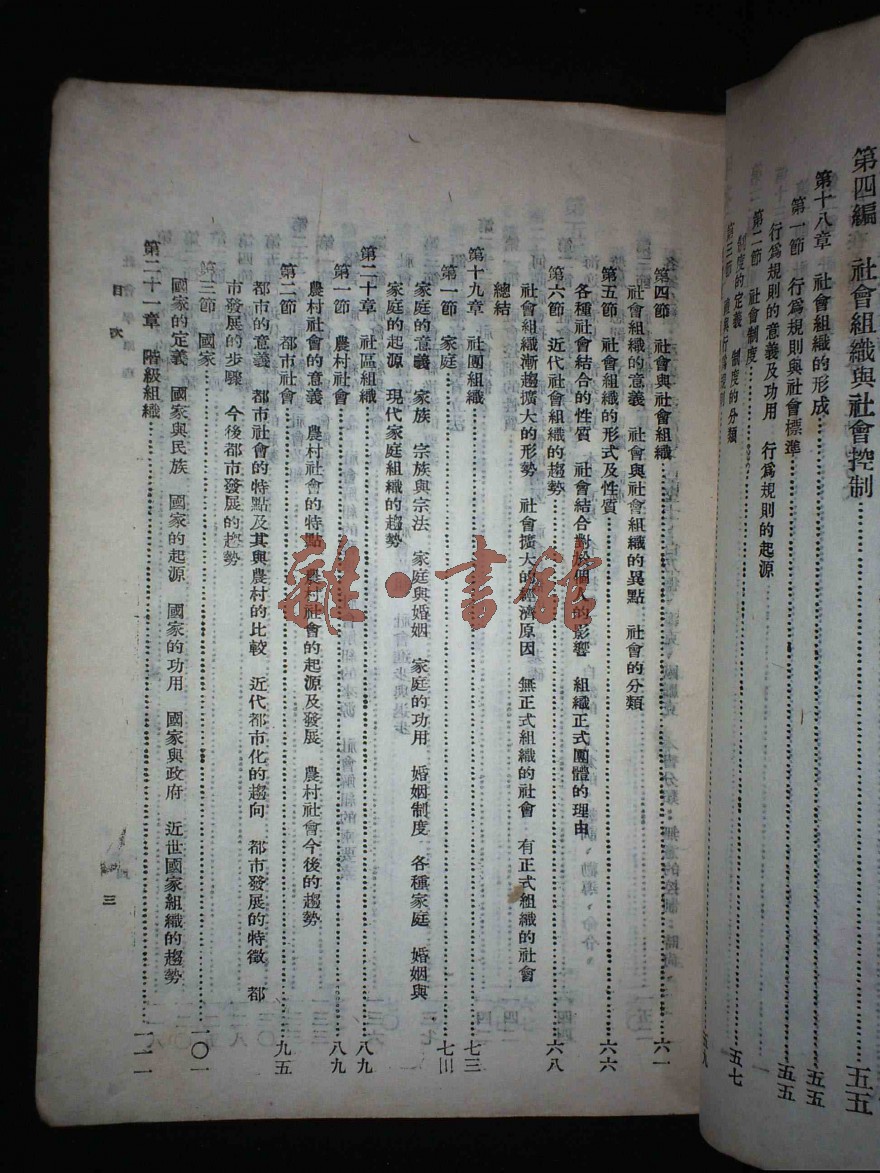 第四編 社會組織與社會控制……五五
第十八章 社會組織的形成……五五
第一節 行爲規則與社會標準……五五
行爲規則的意義及功用 行爲規則的起源
第二節 社會制度……五七
制度的定義 制度的分類
第四節 社會與社會組織……六一
社會組織的意義 社會與社會組織的異點 社會的分類
第五節 社會組織的形式及性質……六六
各種社會結合的性質 社會結合對於個人的影響 組織正式團體的理由
第六節 近代社會組織的趨勢……六八
社會組織漸趨擴大的形勢 社會擴大的經濟原因 無正式組織的社會 有正式組織的社會
總結
第十九章 社團組織……七三
第一節 家庭……七三
家庭的意義 家族 宗族與宗法 家庭與婚姻 家庭的功用 婚姻制度 各種家庭 婚姻與
家庭的起源 現代家庭組織的趨勢
第二十章 社區組織……八九
第一節 農村社會……八九
農村社會的意義 農村社會的特點 農村社會的起源及發展 農村社會今後的趨勢
第二節 都市社會……九五
都市的意義 都市社會的特點及其與農村的比較 近代都市化的趨向 都市發展的特徵 都
市發展的步驟 今後都市發展的趨勢
第三節 國家……一〇一
國家的定義 國家與民族 國家的起源 國家的功用 國家與政府 近世國家組織的趨勢
第二十一章 階級組織……一一一
目次
三
雜·書館